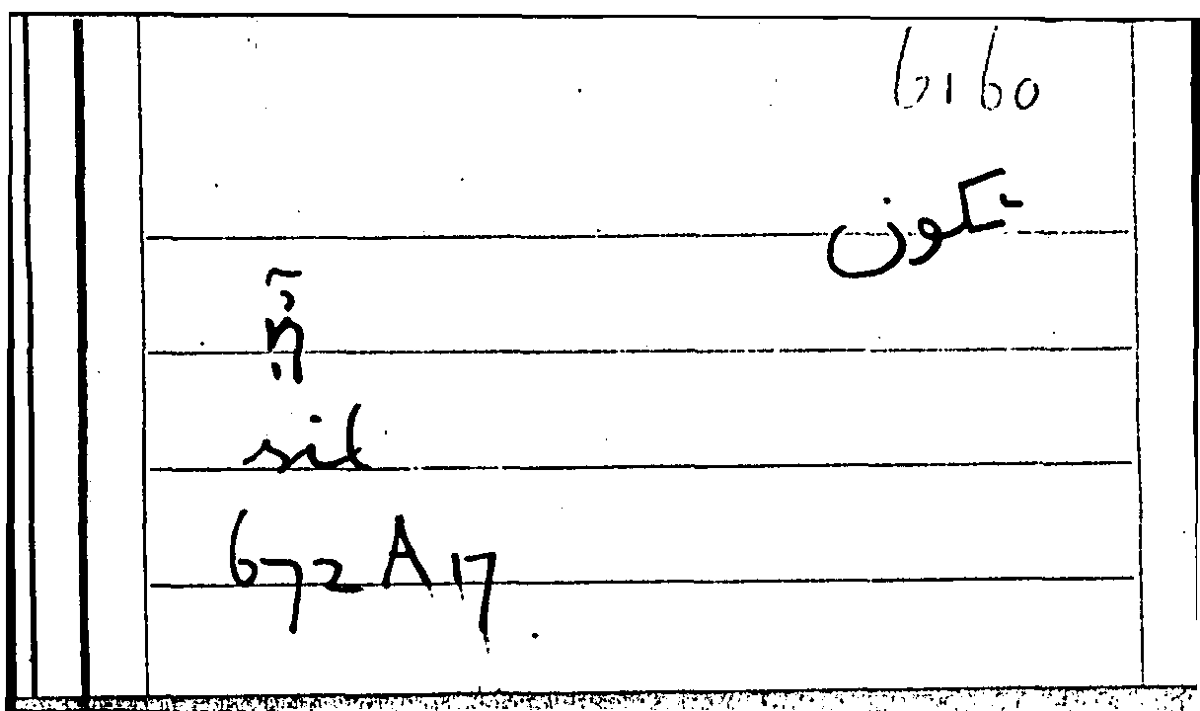 6160
تكون
sil
672 A 17.